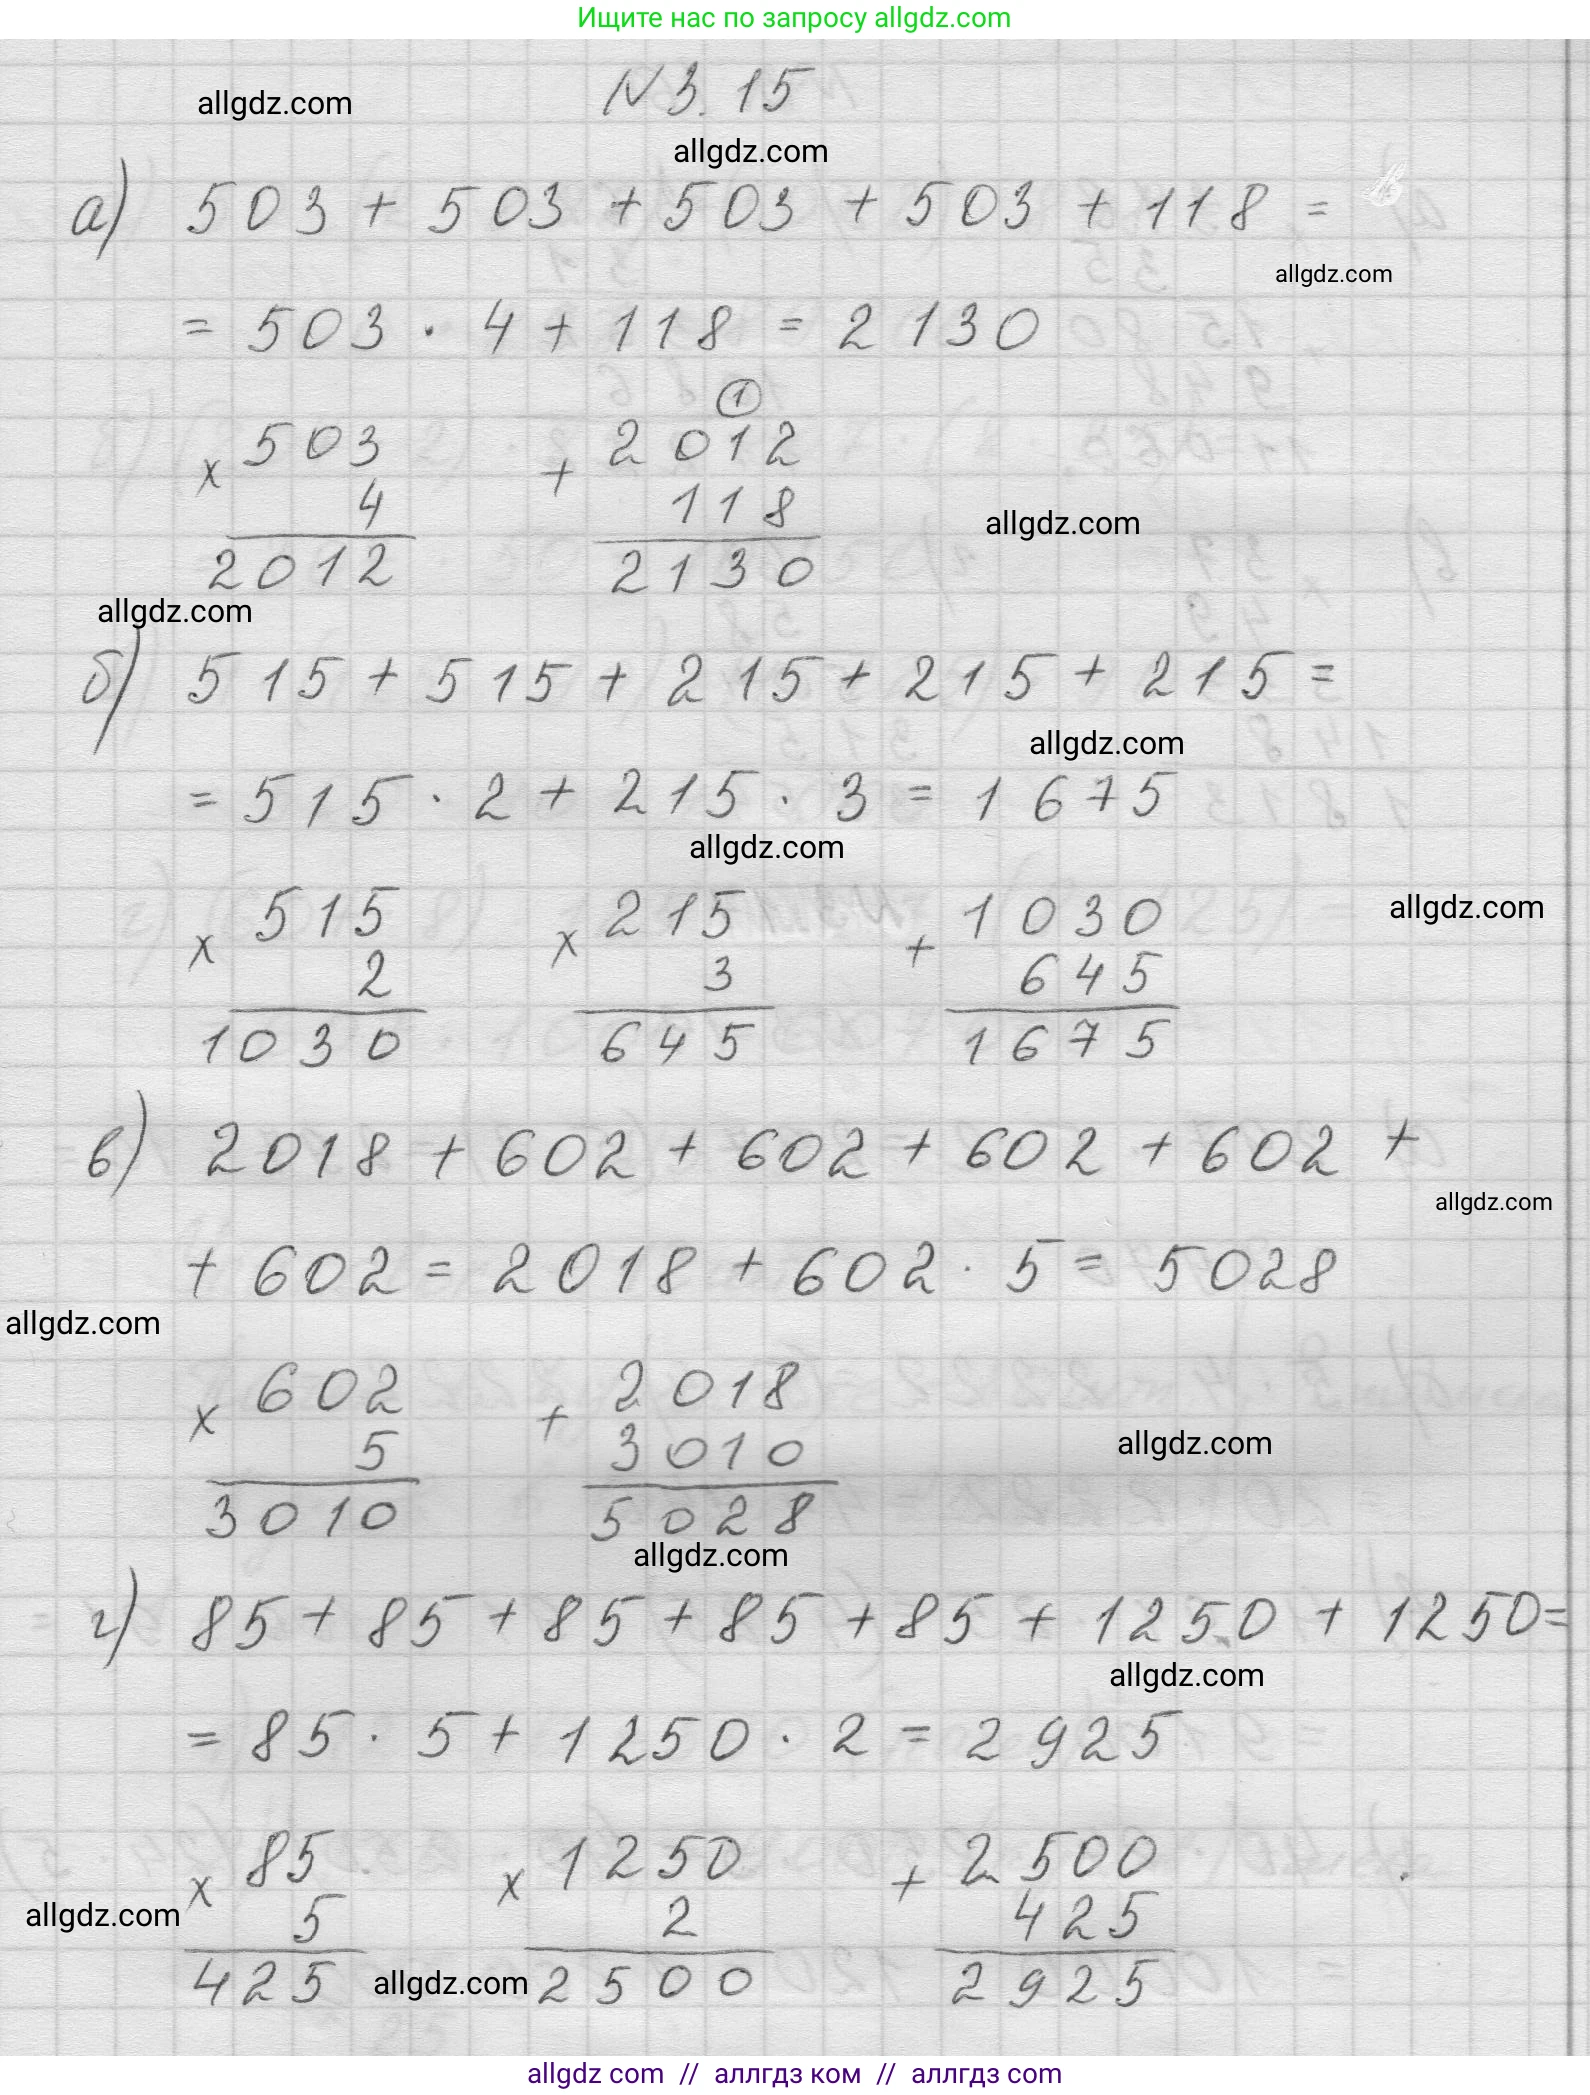 Ищите нас по запросу allgdz.com
N 3.15
allgdz.com
allgdz.com
а) 503 + 503 + 503 + 503 + 118 =
allgdz.com
= 503 · 4 + 118 = 2130
1
× 503 + 2012
4 118
allgdz.com
2012 2130
allgdz.com
б) 515 + 515 + 215 + 215 + 215 =
allgdz.com
= 515 · 2 + 215 · 3 = 1675
allgdz.com
× 515 × 215 + 1030
allgdz.com
2 3 645
1030 645 1675
в) 2018 + 602 + 602 + 602 + 602 +
allgdz.com
+ 602 = 2018 + 602 · 5 = 5028
allgdz.com
× 602 + 2018
5 3010
allgdz.com
3010 5028
allgdz.com
г) 85 + 85 + 85 + 85 + 85 + 1250 + 1250 =
allgdz.com
= 85 · 5 + 1250 · 2 = 2925
× 85 × 1250 + 2500
5 2 425
allgdz.com
425 2500 2925
allgdz.com
allgdz com // аллгдз ком // аллгдз com